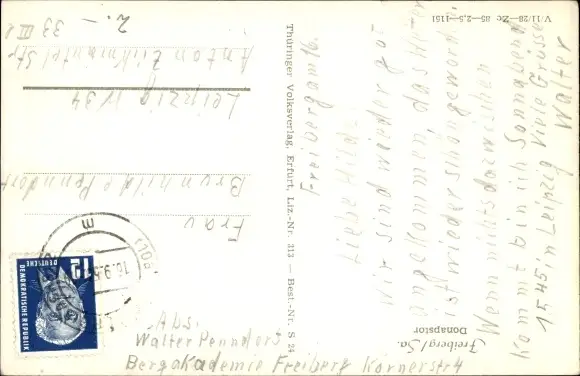 Freiberg/Sa.
Donapstor
Freiberg am 16.
Liebe Hilde
Wir sind wieder gut
angekommen, das Wetter
ist wieder schön geword.
Wenn nichts dazwischen
kommt bin ich Sonnabend
15 45 in Leipzig Viele Grüsse
Walter
V/11/28—Ze 85—2,5—1151
Thüringer Volksverlag, Erfurt, Liz.-Nr. 313 — Best.-Nr. S 24
12
DEUTSCHE
DEMOKRATISCHE REPUBLIK
16.9.5
m
Frau
Brunhilde Penndorf
Leipzig W 34
Anton Zickmantel Str
33 III
2.-
Abs.
Walter Penndorf
Bergakademie Freiberg Körnerstr 4